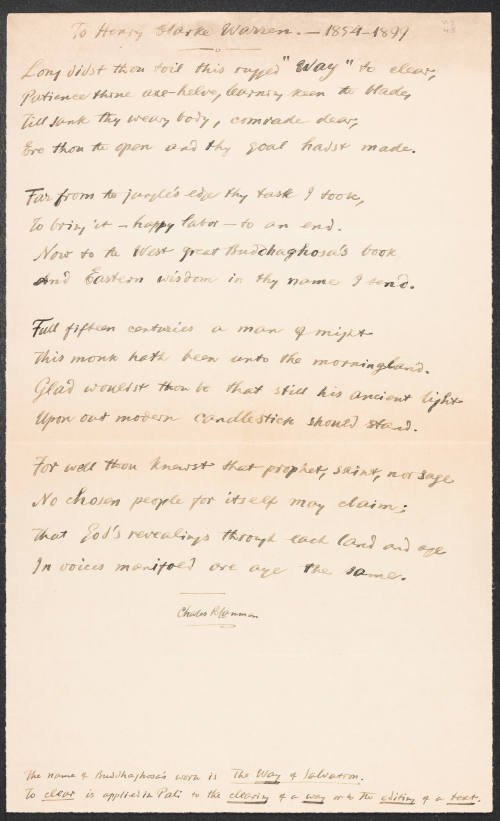 To Henry Clarke Warren. — 1854–1899
Long didst thou toil this rugged "Way" to clear,
Patience thine axe-helve, learning keen the blade,
Till sank thy weary body, comrade dear,
Ere thou the open and thy goal hadst made.
Far from the jungle's edge thy task I took,
To bring it – happy labor – to an end.
Now to the West great Buddhaghosa's book
And Eastern wisdom in thy name I send.
Full fifteen centuries a man of might
This monk hath been unto the morningland.
Glad wouldst thou be that still his ancient light
Upon our modern candlestick should stand.
For well thou knewst that prophet, saint, nor sage
No chosen people for itself may claim;
That God's revealings through each land and age
In voices manifold are aye the same.
Charles R. Lanman
The name of Buddhaghosa's work is The Way of Salvation.
To clear is applied in Pali to the clearing of a way or to the editing of a text.